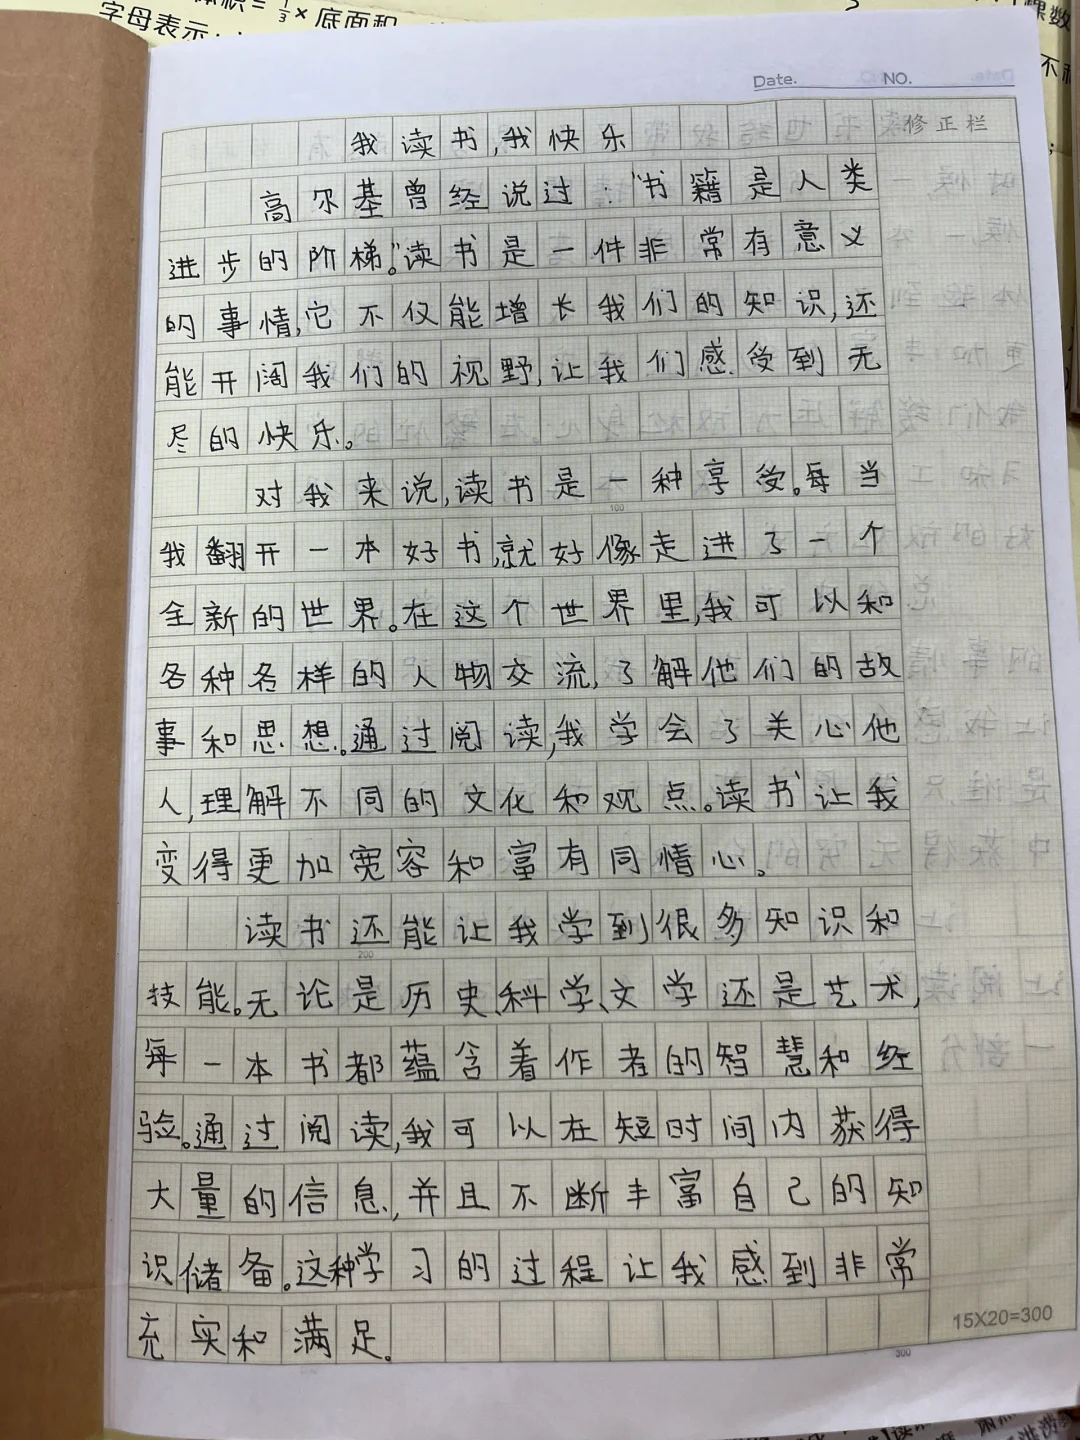 字母表示
Date. NO.
修正栏
我读书,我快乐
高尔基曾经说过:“书籍是人类
进步的阶梯。”读书是一件非常有意义
的事情,它不仅能增长我们的知识,还
能开阔我们的视野,让我们感受到无
尽的快乐。
对我来说,读书是一种享受。每当
100
我翻开一本好书,就好像走进了一个
全新的世界。在这个世界里,我可以和
各种各样的人物交流,了解他们的故
事和思想。通过阅读,我学会了关心他
人,理解不同的文化和观点。读书让我
变得更加宽容和富有同情心。
读书还能让我学到很多知识和
200
技能。无论是历史、科学、文学还是艺术,
每一本书都蕴含着作者的智慧和经
验。通过阅读,我可以在短时间内获得
大量的信息,并且不断丰富自己的知
识储备。这种学习的过程让我感到非常
充实和满足。
15X20=300
300